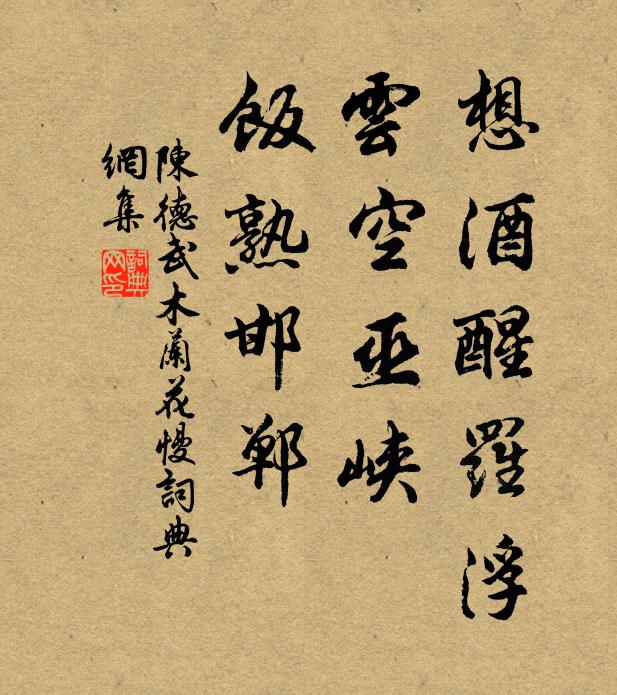 想酒醒羅浮
雲空巫峽
飯熟邯鄲
陳德武木蘭花慢詞典
網集
詞典
网印